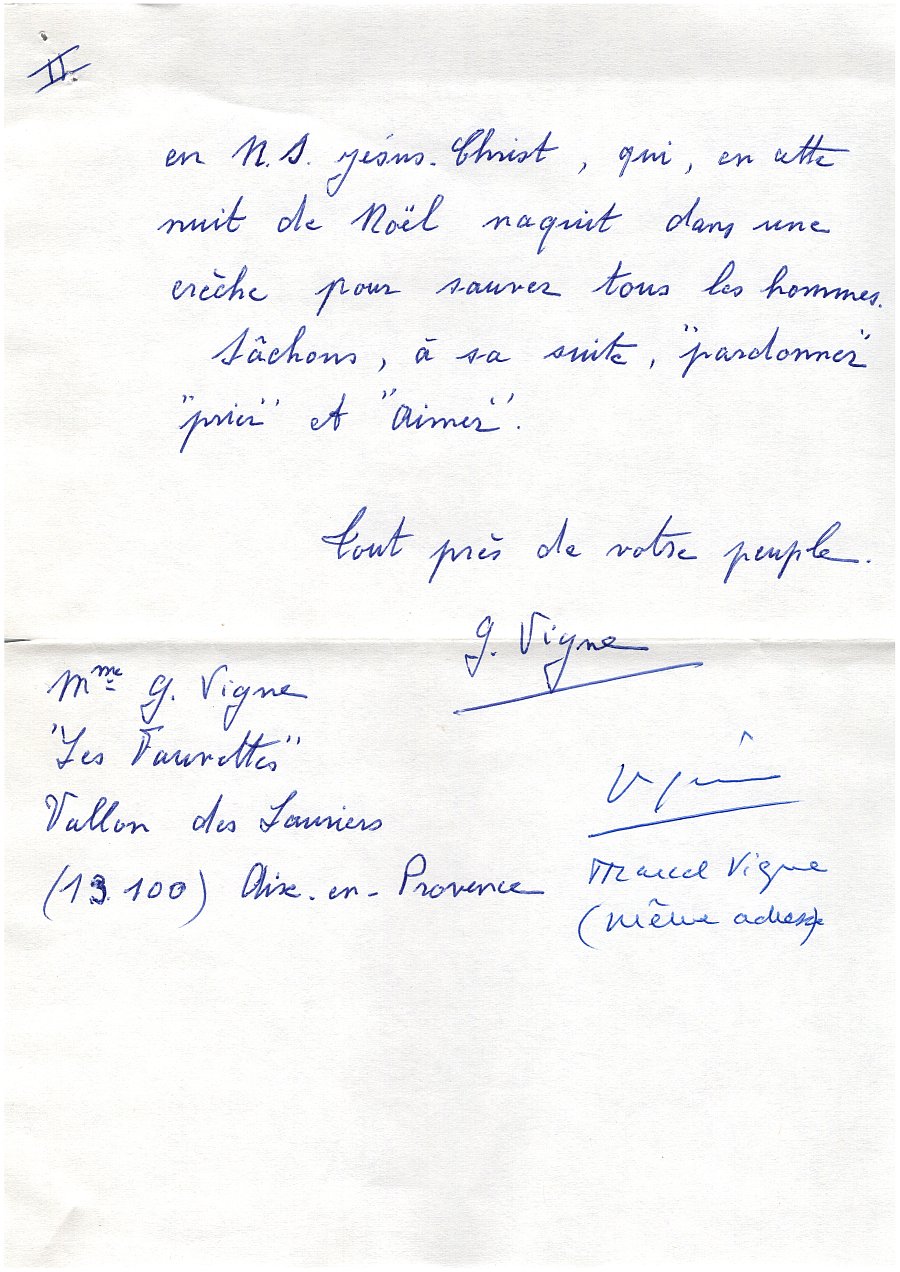 II
en N.S. Jésus-Christ, qui, en cette
nuit de Noël naquit dans une
crèche pour sauver tous les hommes.
Sâchons, à sa suite, "pardonner"
"prier" et "Aimer".
Tout près de votre peuple.
G. Vigne
Mme G. Vigne
"Les Fauvettes"
Vallon des Lauriers
(13.100) Aix-en-Provence
Marcel Vigne
(même adresse)